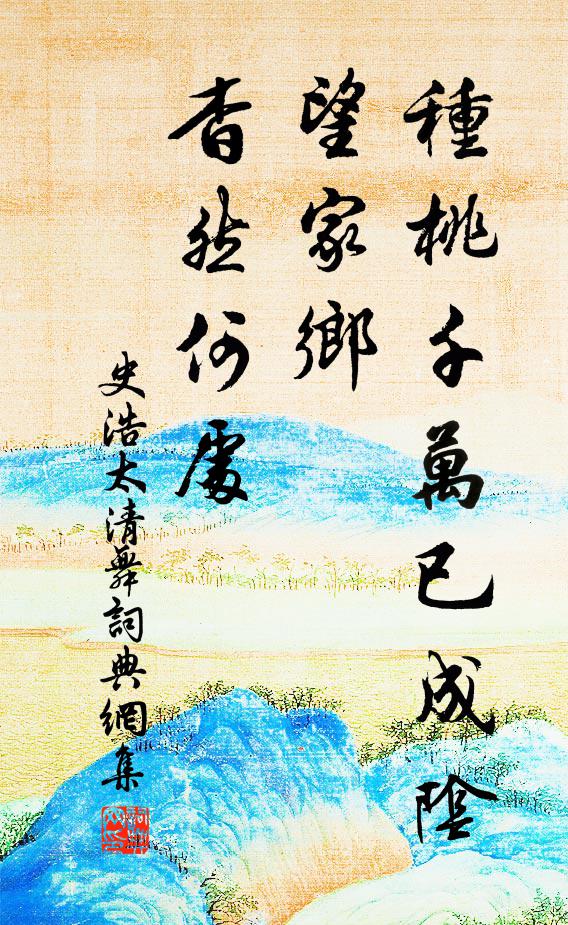 種桃千萬已成陰
望家鄉
杳然何處
史浩太清舞詞典網集